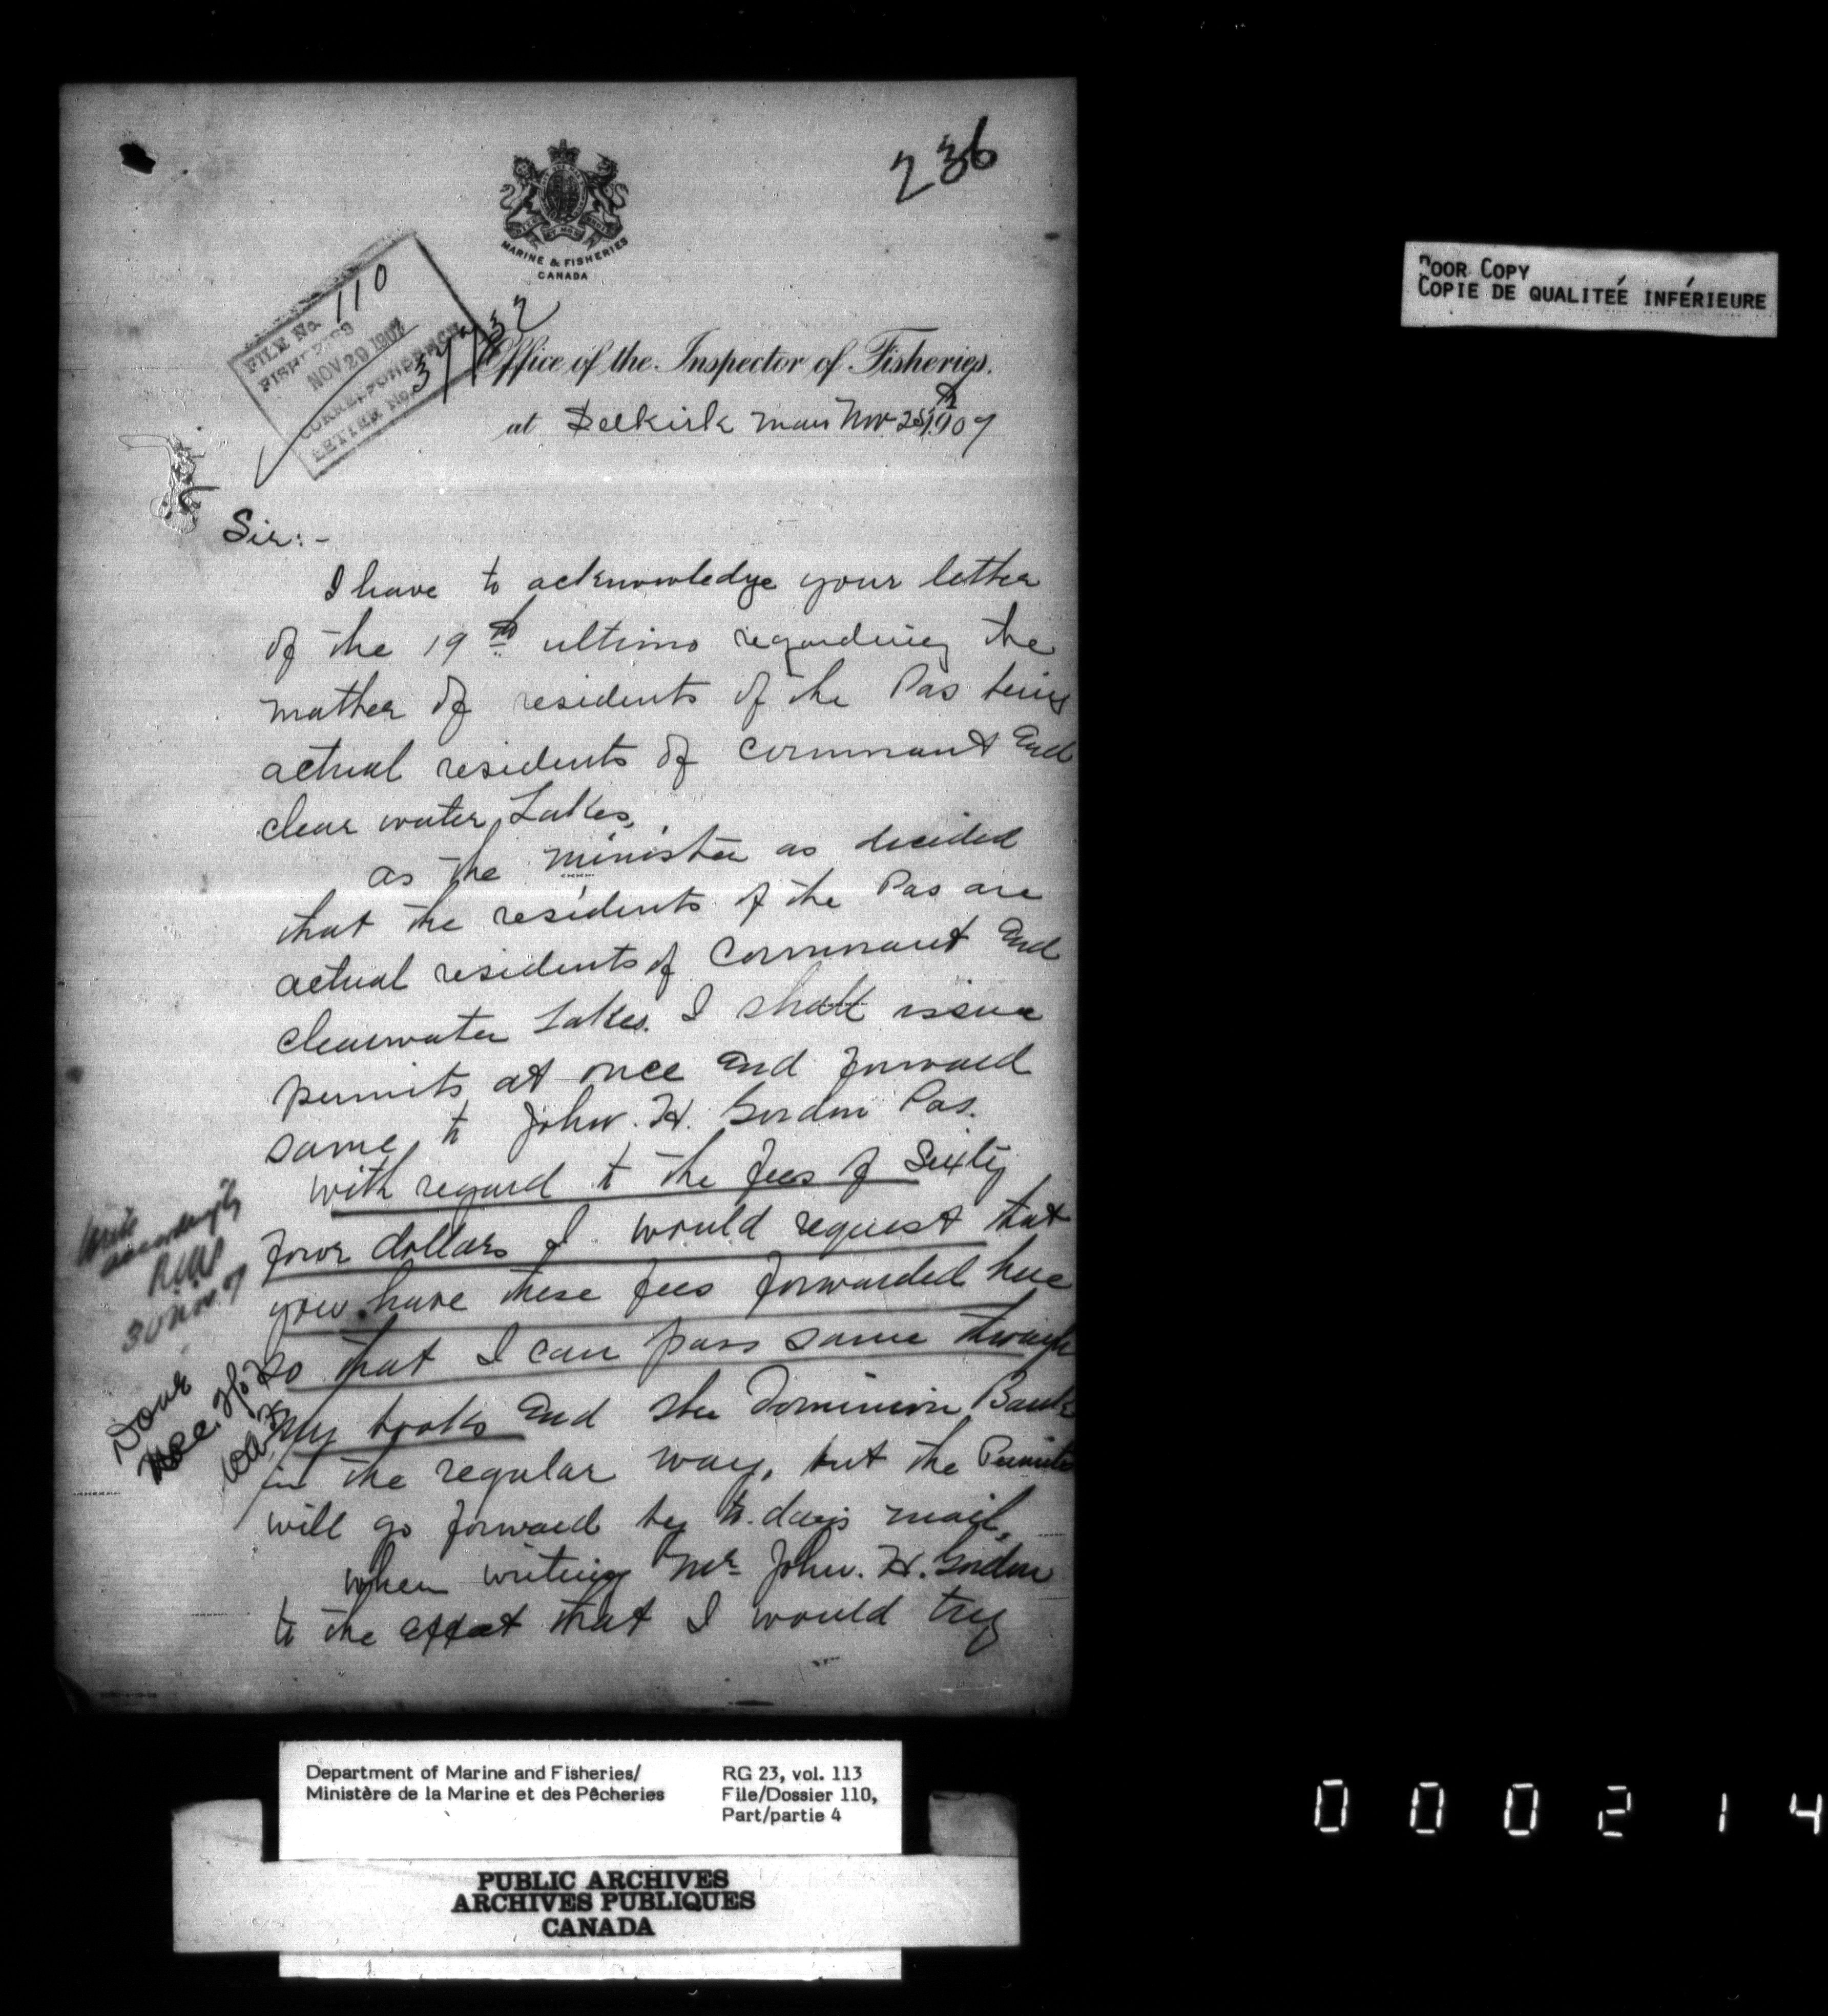 236
MARINE & FISHERIES
CANADA
FILE No. 110
FISHERIES
NOV 29 1907
CORRESPONDENCE
LETTER No.
Office of the Inspector of Fisheries.
at Selkirk Man Nov 25th 1907
Sir:-
I have to acknowledge your letter
of the 19th ultimo regarding the
matter of residents of the Pas being
actual residents of Cormorant and
clear water Lakes.
as the minister as decided
that the residents of the Pas are
actual residents of Cormorant and
clearwater Lakes. I shall issue
permits at once and forward
same to John. H. Gordon Pas.
with regard to the fees of Sixty
four dollars I would request that
you have these fees forwarded here
so that I can pass same through
my books and the Dominion Bank
in the regular way, but the Permits
will go forward by to.days mail.
when writing Mr John. H. Gordon
to the effect that I would try
Write
accordingly
30 Nov. 07
Done
POOR COPY
COPIE DE QUALITEÉ INFÉRIEURE
Department of Marine and Fisheries/
Ministère de la Marine et des Pêcheries
RG 23, vol. 113
File/Dossier 110,
Part/partie 4
PUBLIC ARCHIVES
ARCHIVES PUBLIQUES
CANADA
000214